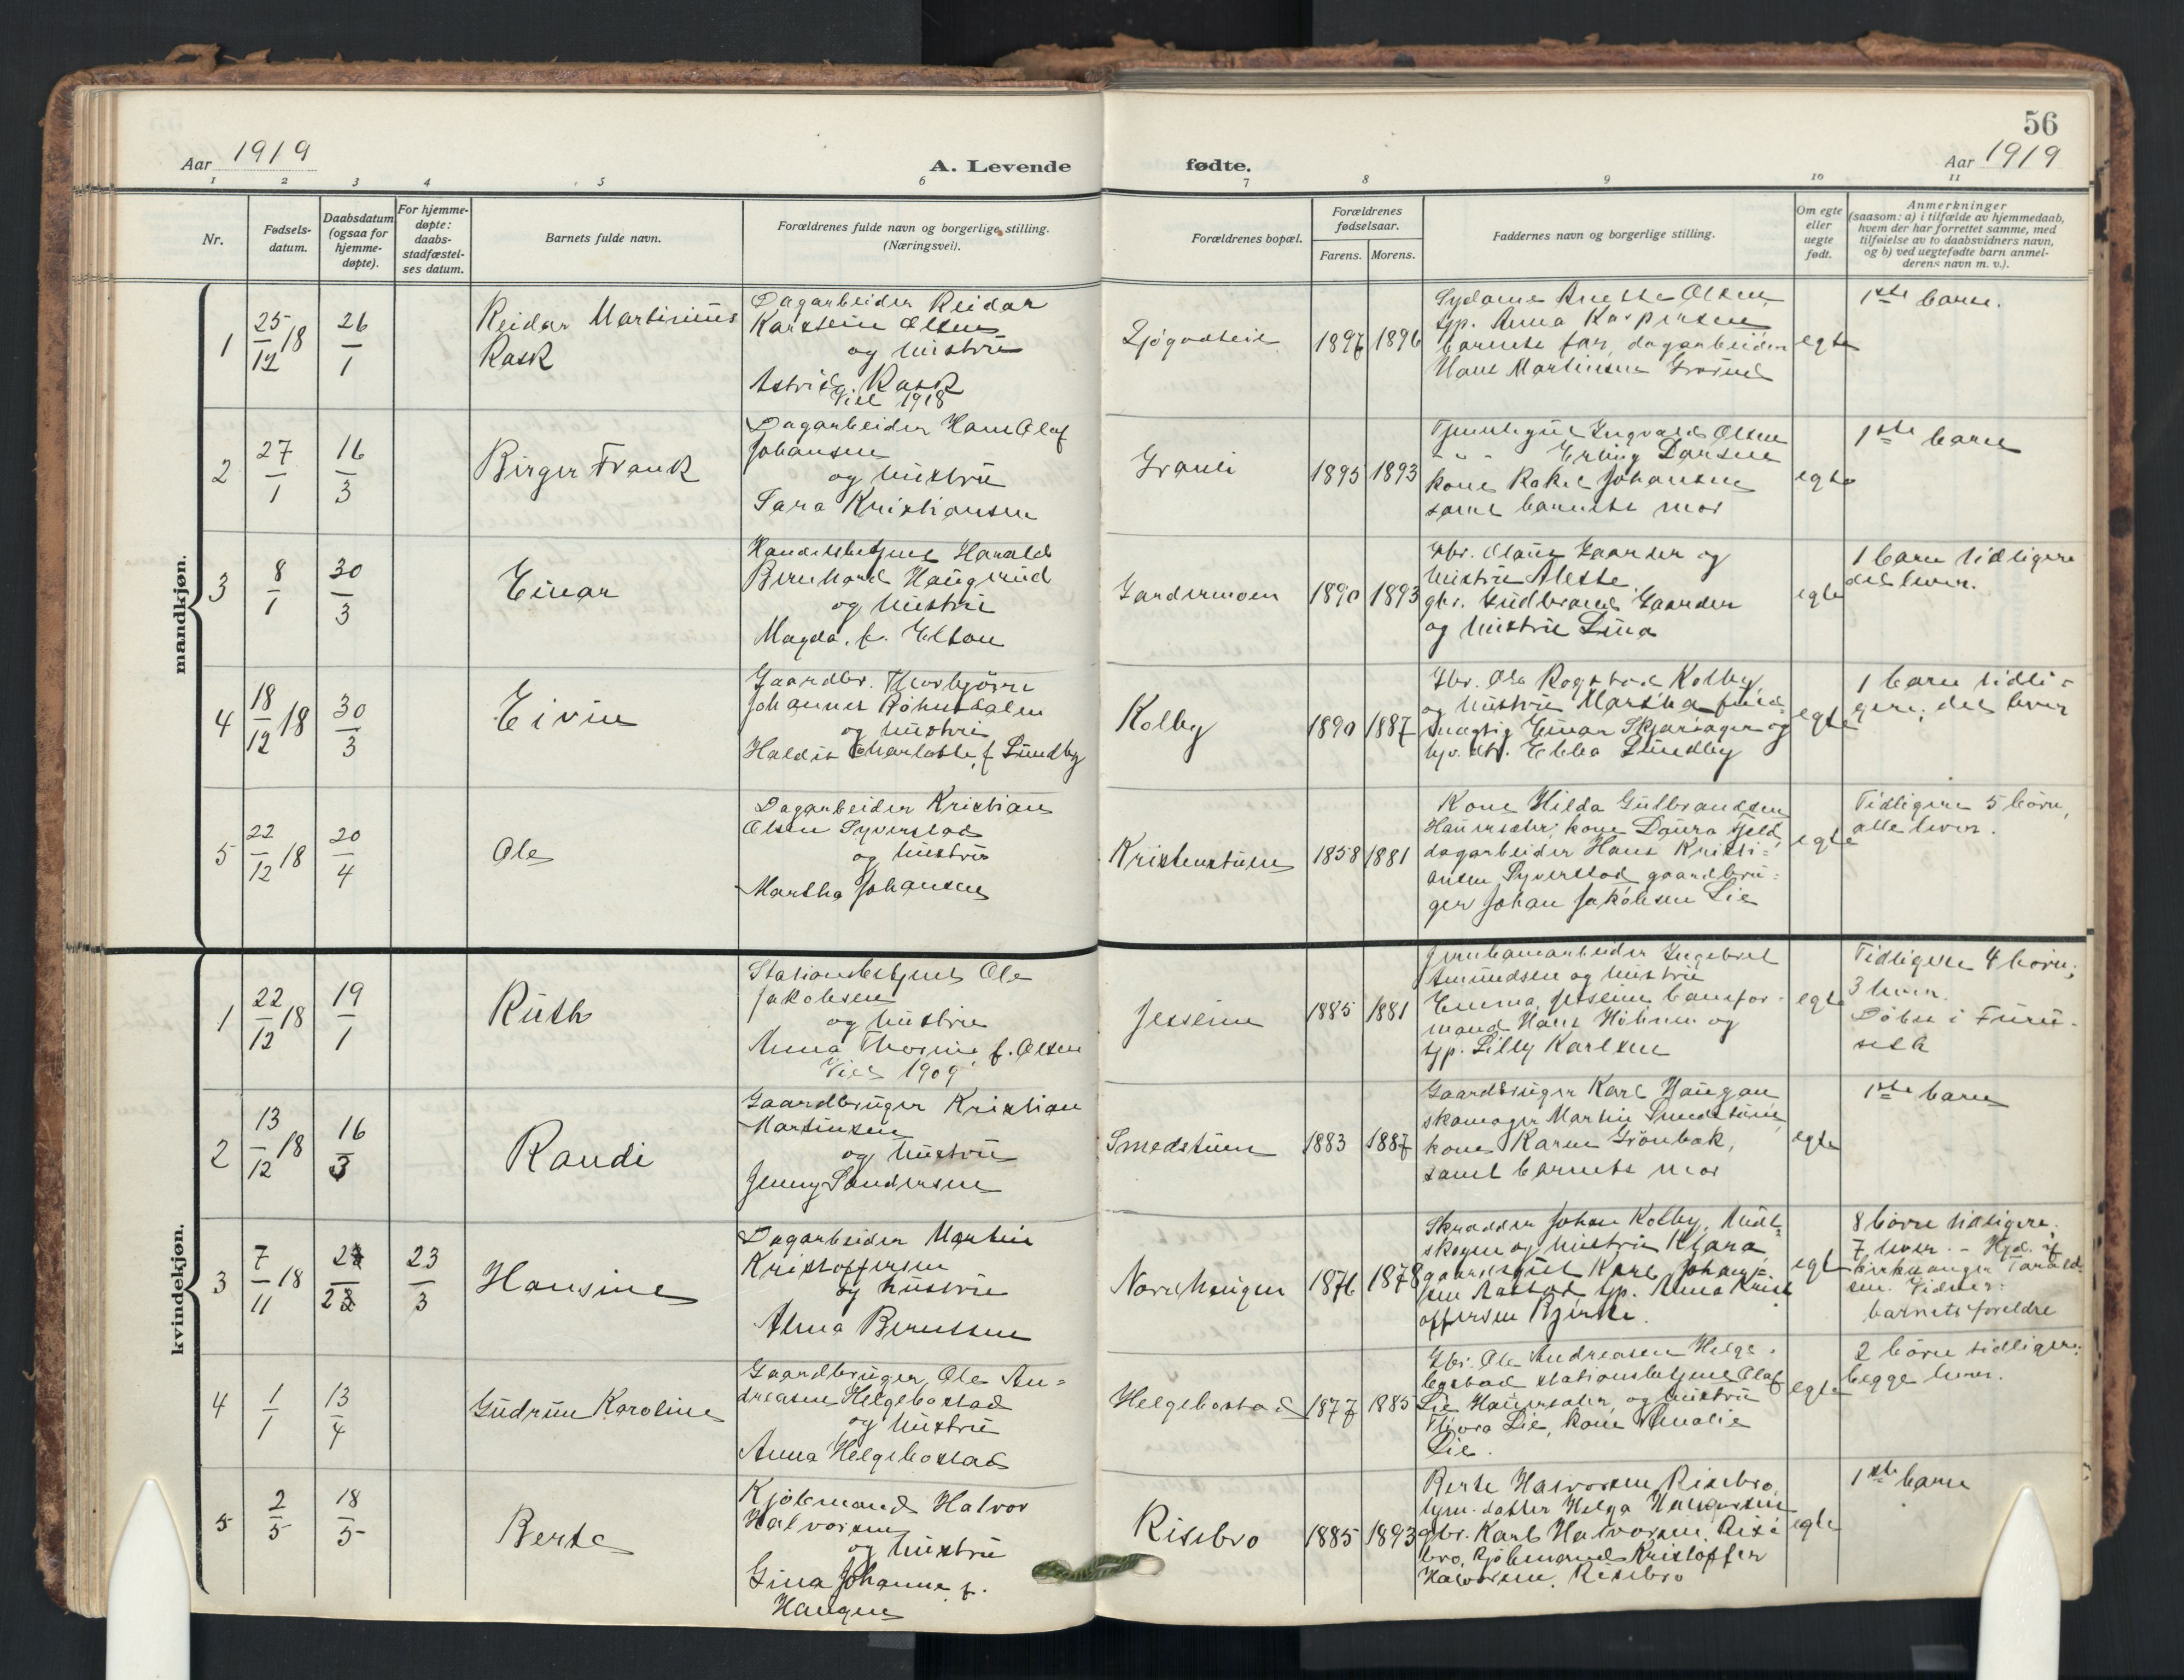 56
Aar 1919
A. Levende
fødte.
Aar 1919
1 2 3 4 5 6 7 8 9 10 11
Nr.
Fødsels-
datum.
Daabsdatum
(ogsaa for
hjemme-
døpte).
For hjemme-
døpte:
daabs-
stadfæstel-
ses datum.
Barnets fulde navn.
Forældrenes fulde navn og borgerlige stilling.
(Næringsvei).
Forældrenes bopæl.
Forældrenes
fødselsaar.
Farens. Morens.
Faddernes navn og borgerlige stilling.
Om egte
eller
uegte
født.
Anmerkninger
(saasom: a) i tilfælde av hjemmedaab,
hvem der har forrettet samme, med
tilføielse av to daabsvidners navn,
og b) ved uegtefødte barn anmel-
derens navn m. v.).
mandkjøn.
1
25/12 18
26/1
Reidar Martinius
Rask
Dagarbeider Reidar
Karstein Olsen
og hustru
Astrid Rask
Viet 1918
1897 1896
Sydame Anette Olsen
tjp. Anna Kaspersen
barnets far, dagarbeider
Hans Martinsen
egte
1ste barn.
2
27/1
16/3
Birger Frank
Dagarbeider Hans Olaf
Johansen
og hustru
Sara Kristiansen
Granli
1895 1893
Ingvald Olsen
" Erling Larsen
kone Rakel Johansen
samt barnets mor
egte
1ste barn
3
8/1
30/3
Einar
Handelsbetjent Harald
Bernhard Haugerud
og hustru
Magda f. Elton
Gardermoen
1890 1893
Gbr. Olaus Gaarder og
hustru Alette
gbr. Gudbrand Gaarder
og hustru Lina
egte
1 barn tidligere
det lever.
4
18/12 18
30/3
Eivin
Gaardbr. Thorbjørn
Johannes Rohusdalen
og hustru
Haldis Charlotte f. Lundby
Kolby
1890 1887
Gbr. Ole Rogstad Kolby
og hustru Martha
Einar Skjæriager og
Ebba Lundby
egte
1 barn tidli-
gere; det lever
5
22/12 18
20/4
Ole
Dagarbeider Kristian
Olsen Syverstad
og hustru
Martha Johansen
Kristenstuen
1858 1881
Kone Hilda Gulbrandsen
Hauersæter, kone Laura Fjeld
dagarbeider Hans Kristi-
ansen Syverstad gaardbru-
ger Johan Jakobsen Lie
egte
Tidligere 5 børn,
alle lever.
kvindekjøn.
1
22/12 18
19/1
Ruth
Stationsbetjent Ole
Jakobsen
og hustru
Anna Thorine f. Olsen
Viet 1909
Jessheim
1885 1881
Jernbanearbeider Ingebret
Amundsen og hustru
Emma, Jessheim banefor-
mand Hans Holmen og
tjp. Lilly Karlsen
egte
Tidligere 4 børn;
3 lever.
Døbt i Furu-
seth
2
13/12 18
16/3
Randi
Gaardbruger Kristian
Martinsen
og hustru
Jenny Sandersen
Smedstuen
1883 1887
Gaardbruger Karl Haugan
skomager Martin Smedstuen,
kone Karen Grønbak,
samt barnets mor
egte
1ste barn
3
7/11 18
23
23/3
Hansine
Dagarbeider Martin
Kristoffersen
og hustru
Alma Berntsen
Nordhaugen
1876 1878
Skrædder Johan Kolby,
skogen og hustru Klara
gaardsgut Karl Johan-
sen Aastad tjp. Anna Krist
offersen Bjerke.
egte
8 børn tidligere.
7 lever. - Hjd. af
kirkesanger Tarald-
sen. Vidner:
barnets foreldre
4
1/1
13/4
Gudrun Karoline
Gaardbruger Ole An-
dreasen Helgebostad
og hustru
Anna Helgebostad
Helgebostad
1877 1885
Gbr. Ole Andreasen Helge-
bostad stationsbetjent Olaf
Lie Hauersæter, og hustru
Thora Lie, kone Amalie
Lie.
egte
2 børn tidligere;
begge lever.
5
2/5
18/5
Berte
Kjøbmand Halvor
Halvorsen
og hustru
Gina Johanne f.
Haugen
Risebro
1885 1893
Berte Halvorsen Risebro,
datter Helga Halvorsen
gbr. Karl Halvorsen, Rise
bro, kjøbmand Kristoffer
Halvorsen, Risebro
egte
1ste barn